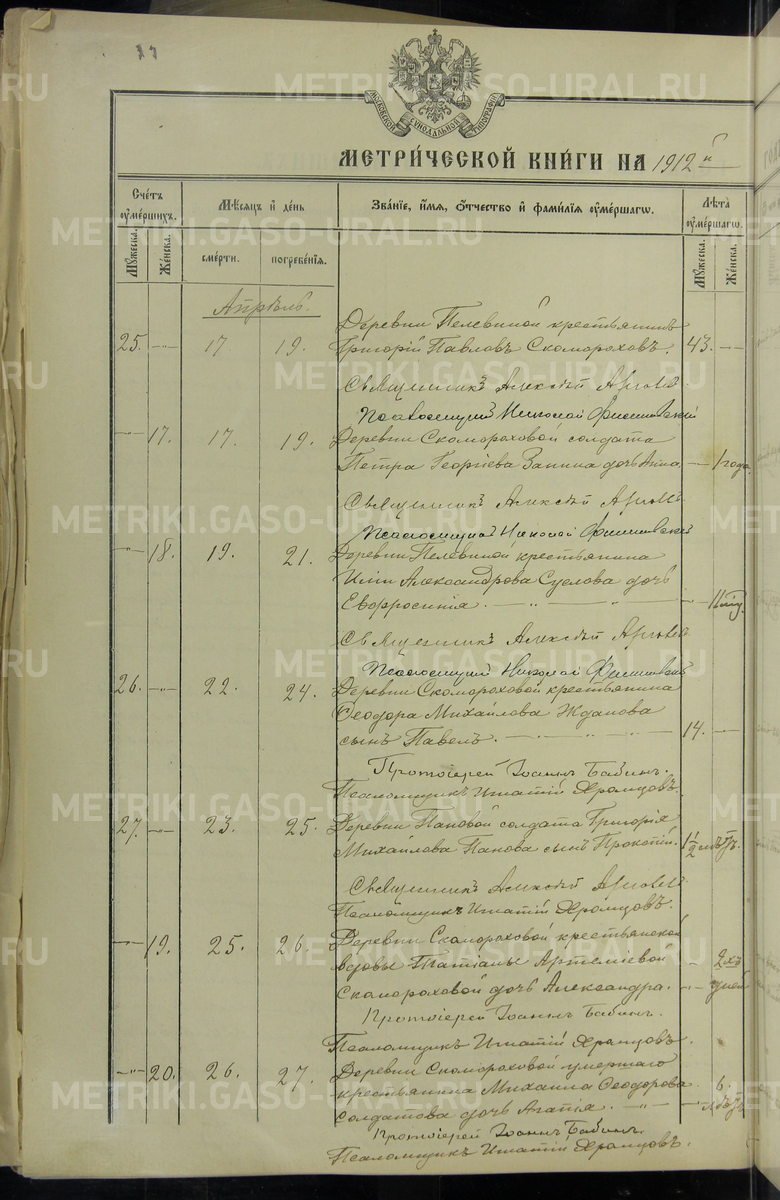 МОСКОВСКОЙ СѴНОДАЛЬНОЙ ТИПОГРАФІИ
МЕТРИ́ЧЕСКОЙ КНИ́ГИ НА 1912 й г
Сче́тъ ᲂу҆ме́ршихъ.
Мѣ́сяцъ и҆ де́нь
Зва́ніе, и҆́мя, ѻ҆́тчество и҆ фами́лія ᲂу҆ме́ршагѡ.
Лѣ́та ᲂу҆ме́ршагѡ.
Мꙋ́жеска.
Же́нска.
сме́рти.
погребе́нія.
Мꙋ́жеска.
Же́нска.
Апрѣль.
Деревни Пелевиной крестьянинъ
25. —"— 17 19. Григорій Павловъ Скомороховъ. 43. —
Священникъ Алексѣй
Псаломщикъ Николай
—"— 17. 17. 19. Деревни Скомороховой солдата
Петра Георгіева Занина дочь Анна. — 1 года.
Священникъ Алексѣй
Псаломщикъ Николай
—"— 18. 19. 21. Деревни Пелевиной крестьянина
Иліи Александрова Суслова дочь
Евфросинія. — " — " —
Священникъ Алексѣй
Псаломщикъ Николай
26. —"— 22. 24. Деревни Скомороховой крестьянина
Ѳеодора Михайлова Жданова
сынъ Павелъ. — " — 14. —
Протоіерей Іоаннъ Бабинъ.
Псаломщикъ Игнатій Храмцовъ.
27. —"— 23. 25. Деревни Пановой солдата Григорія
Михайлова Панова сынъ Прокопій. 1/2
Священникъ Алексѣй
Псаломщикъ Игнатій Храмцовъ.
—"— 19. 25. 26. Деревни Скомороховой крестьянской
вдовы Татіаны Артеміевой — 2хъ
Скомороховой дочь Александра. — дней
Протоіерей Іоаннъ Бабинъ.
Псаломщикъ Игнатій Храмцовъ.
—"— 20. 26. 27. Деревни Скомороховой умершаго
крестьянина Михаила Ѳеодорова 6.
Солдатова дочь Агапія. — " —
Протоіерей Іоаннъ Бабинъ.
Псаломщикъ Игнатій Храмцовъ.
METRIKI.GASO-URAL.RU